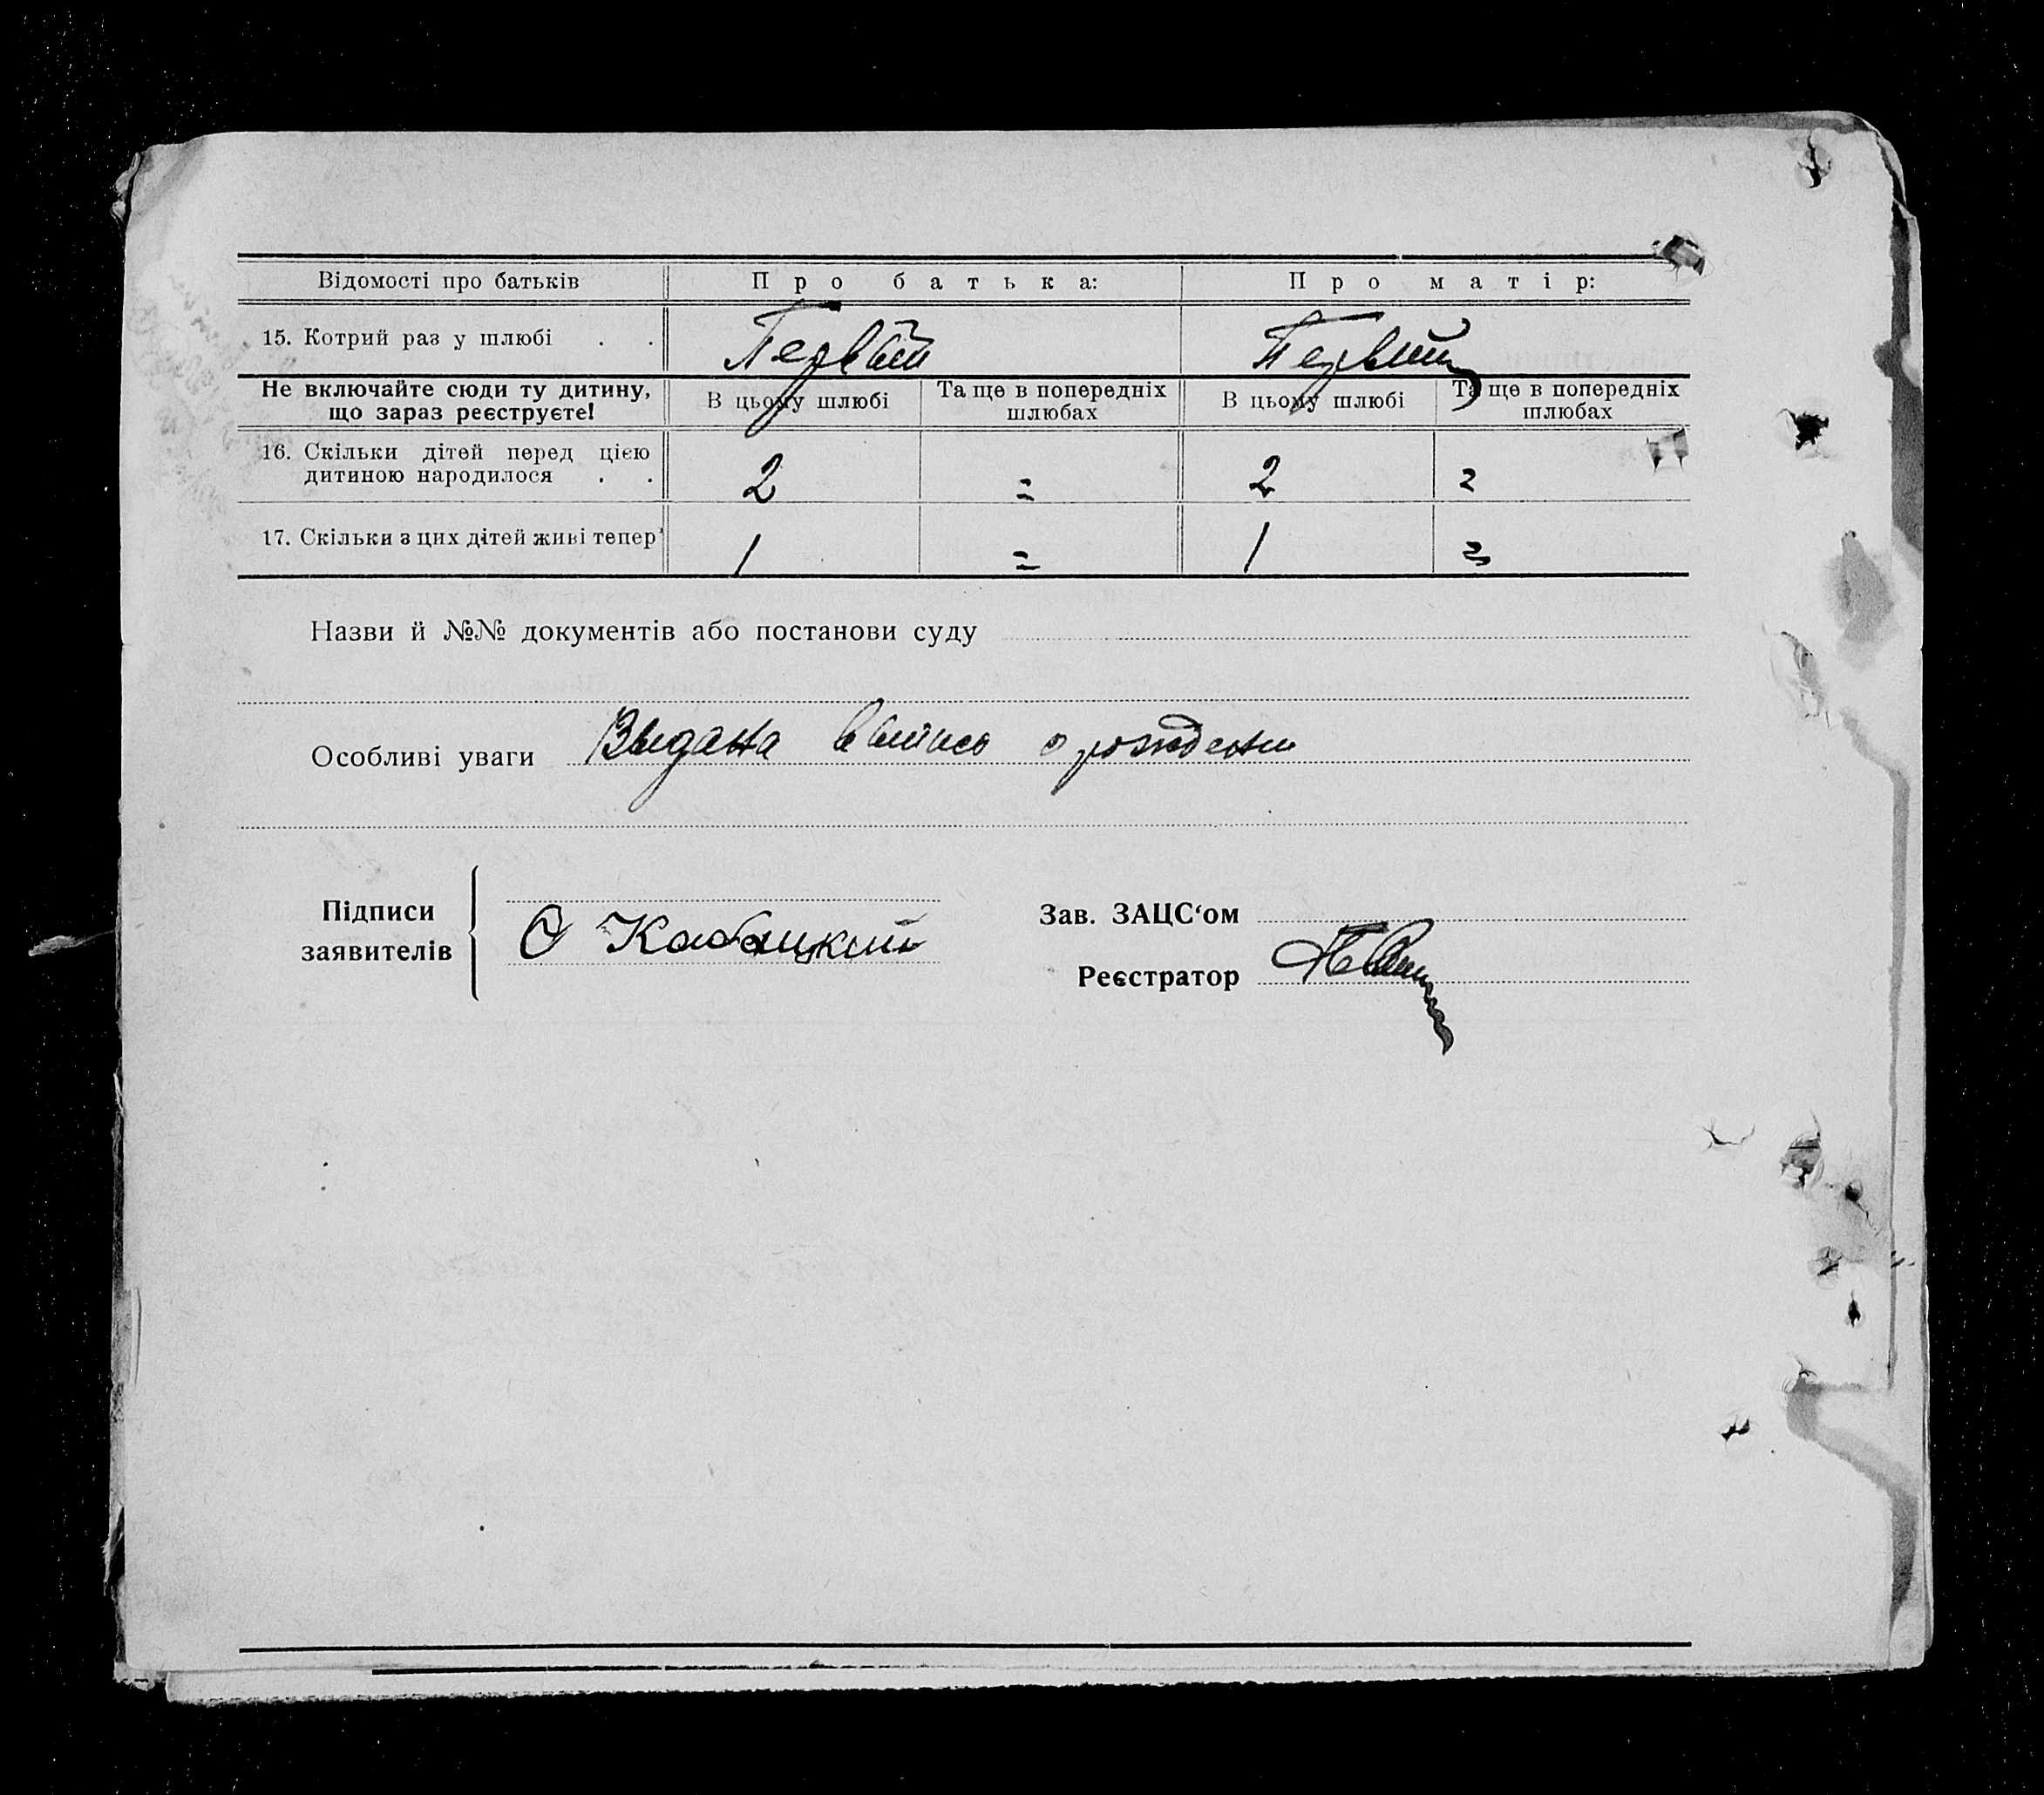 Відомості про батьків Про батька: Про матір:
15. Котрий раз у шлюбі . . Первый Первый
Не включайте сюди ту дитину, що зараз реєструєте! В цьому шлюбі Та ще в попередніх шлюбах В цьому шлюбі Та ще в попередніх шлюбах
16. Скільки дітей перед цією
дитиною народилося . . 2 = 2 =
17. Скільки з цих дітей живі тепер 1 = 1 =
Назви й №№ документів або постанови суду
Особливі уваги Выдана выпись о рождении
Підписи
заявителів О Кабацкий
Зав. ЗАЦС‘ом
Реєстратор